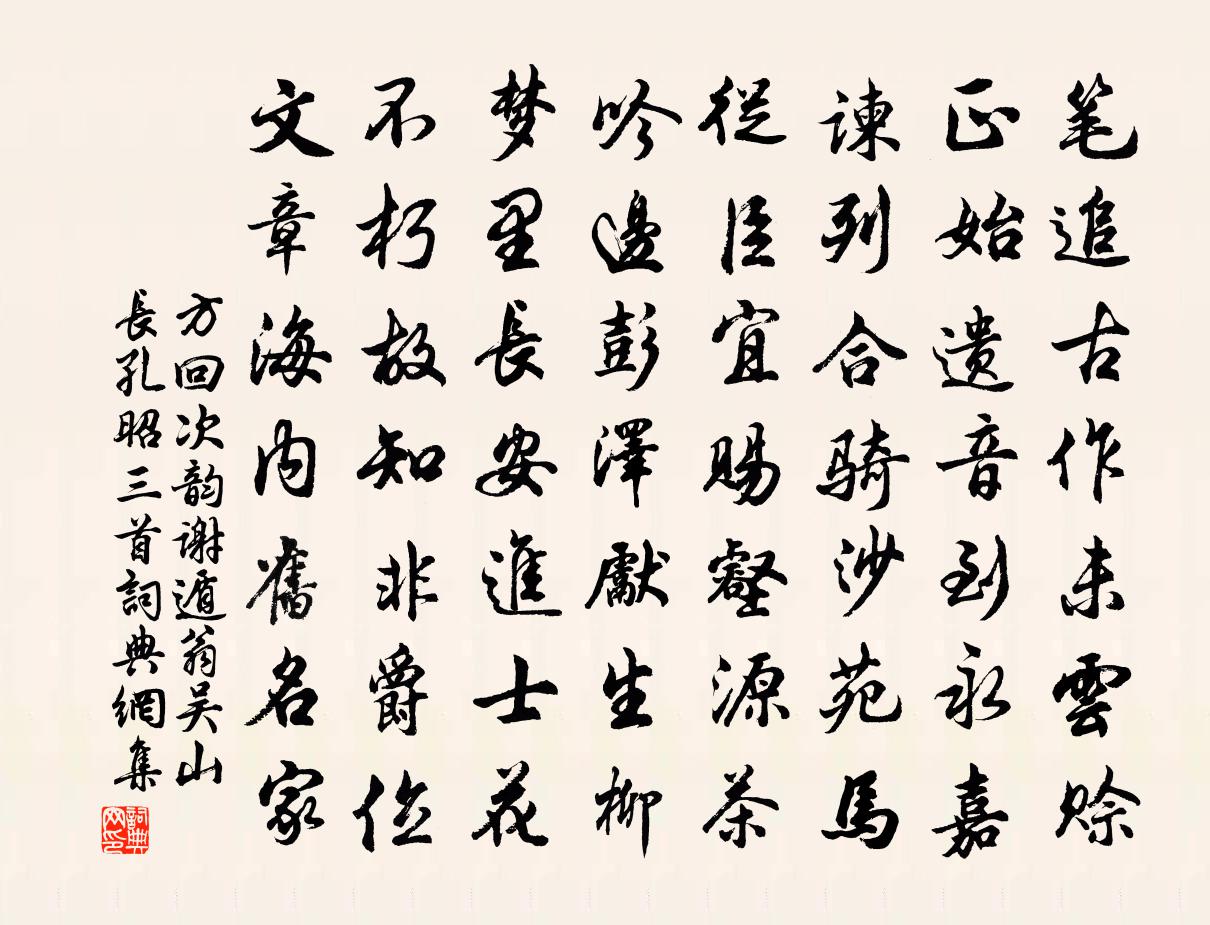 笔追古作未雲賖
正始遗音到永嘉
諫列合騎沙苑馬
從臣宜賜壑源茶
吟邊彭澤獻生柳
梦里長安進士花
不朽故知非爵位
文章海内舊名家
方回次韵謝遁翁吴山
長孔昭三首詞典網集
詞典网印